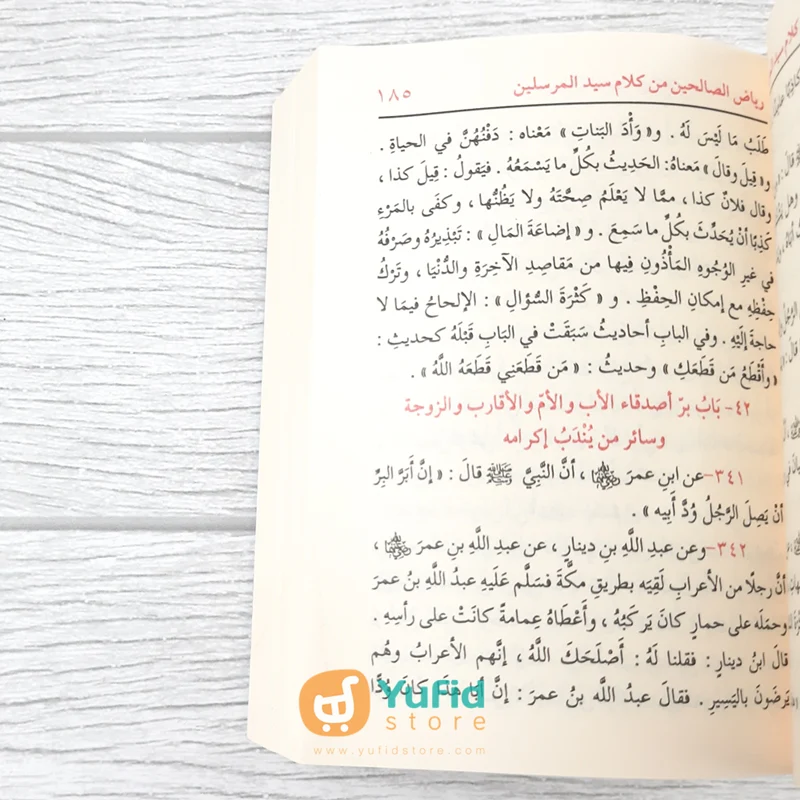 رياض الصالحين من كلام سيد المرسلين ١٨٥
طَلَبُ مَا لَيْسَ لَهُ . و« وَأْدَ البَناتِ » مَعْناه : دَفْنُهُنَّ في الحياةِ .
و« قِيلَ وقالَ » مَعناهُ : الحَدِيثُ بكُلِّ ما يَسْمَعُهُ . فيَقولُ : قِيلَ كذا ،
وقال فلانٌ كذا ، ممَّا لا يَعْلَمُ صِحَّتَهُ ولا يَظُنُّها ، وكفَى بالمَرْءِ
كَذِبًا أنْ يُحَدِّثَ بكُلِّ ما سَمِعَ . و « إضاعَةَ المَالِ » : تَبْذِيرُهُ وصَرْفُهُ
في غيرِ الوُجُوهِ المَأْذُونِ فِيها من مَقاصِدِ الآخِرَةِ والدُّنْيَا ، وتَرْكُ
حِفْظِهِ مع إمكانِ الحِفْظِ . و « كَثْرَةَ السُّؤالِ » : الإلحاحُ فيمَا لا
حاجةَ إلَيْهِ . وفي البابِ أحاديثُ سَبَقَتْ في البَابِ قَبْلَهُ كحديثِ :
«وأَقْطَعُ مَن قَطَعَكِ » وحديثُ : « مَن قَطَعَنِي قَطَعَهُ اللَّهُ » .
٤٢- بَابُ برّ أصدقاء الأب والأمّ والأقارب والزوجة
وسائر من يُنْدَبُ إكرامه
٣٤١-عن ابنِ عمرَ رضي الله عنهما ، أنَّ النَّبيَّ ﷺ قالَ : « إنَّ أَبَرَّ البِرِّ
أنْ يَصِلَ الرَّجُلُ وُدَّ أَبِيه » .
٣٤٢-وعن عبدِ اللَّهِ بنِ دينارٍ ، عن عبدِ اللَّهِ بنِ عمرَ رضي الله عنهما ،
أنَّ رجلًا من الأعرابِ لَقِيَه بطريقِ مكَّةَ فسَلَّم عَلَيهِ عبدُ اللَّهِ بنُ عمرَ
وحمَلَه على حمارٍ كانَ يَركَبُهُ ، وأَعْطَاهُ عِمامةً كانَتْ على رأسِهِ .
قالَ ابنُ دينارٍ : فقلنا لَهُ : أَصْلَحَكَ اللَّهُ ، إنَّهم الأعرابُ وهُم
يَرضَونَ باليَسِيرِ . فقالَ عبدُ اللَّه بنُ عمرَ : إنَّ أبَا هذَا كانَ وُدًّا
Yufid
store
www.yufidstore.com